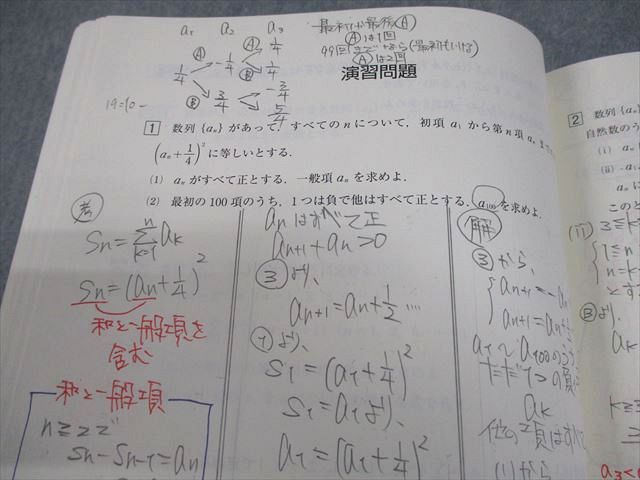 a₁ a₂ a₃
最初か最後Ⓐ
Ⓐは1回
99回まで なら(最初もいける
Ⓐは2回
1/4 Ⓐ -1/4 Ⓐ 1/4
1/4
Ⓑ 3/4 -3/4
5/4
演習問題
1 数列{aₙ}があって,すべてのnについて,初項a₁から第n項aₙまで
(aₙ+1/4)²に等しいとする.
(1) aₙがすべて正とする.一般項aₙを求めよ.
(2) 最初の100項のうち,1つは負で他はすべて正とする.a₁₀₀を求めよ.
考
Sₙ=Σₖ₌₁ⁿ aₖ
Sₙ=(aₙ+1/4)²
和と一般項を
含む
和と一般項
n≧2で
Sₙ-Sₙ₋₁=aₙ
aₙはすべて正
aₙ₊₁+aₙ>0
③より、
aₙ₊₁=aₙ+1/2 …
①より、
S₁=(a₁+1/4)²
S₁=a₁より、
a₁=(a₁+1/4)²
解
③から、
aₙ₊₁=-aₙ
aₙ₊₁=aₙ+
a₁〜a₁₀₀のうち
ただ1つの負
aₖ
他の項はすべ
(1)から
2 数列{a
自然数のう
(i) aₙ
(ii) -aₙ
aₙに
このと
(ii) 3≦k
1≦n
n=k
とす
③より、
aₖ
k≧
a₃<